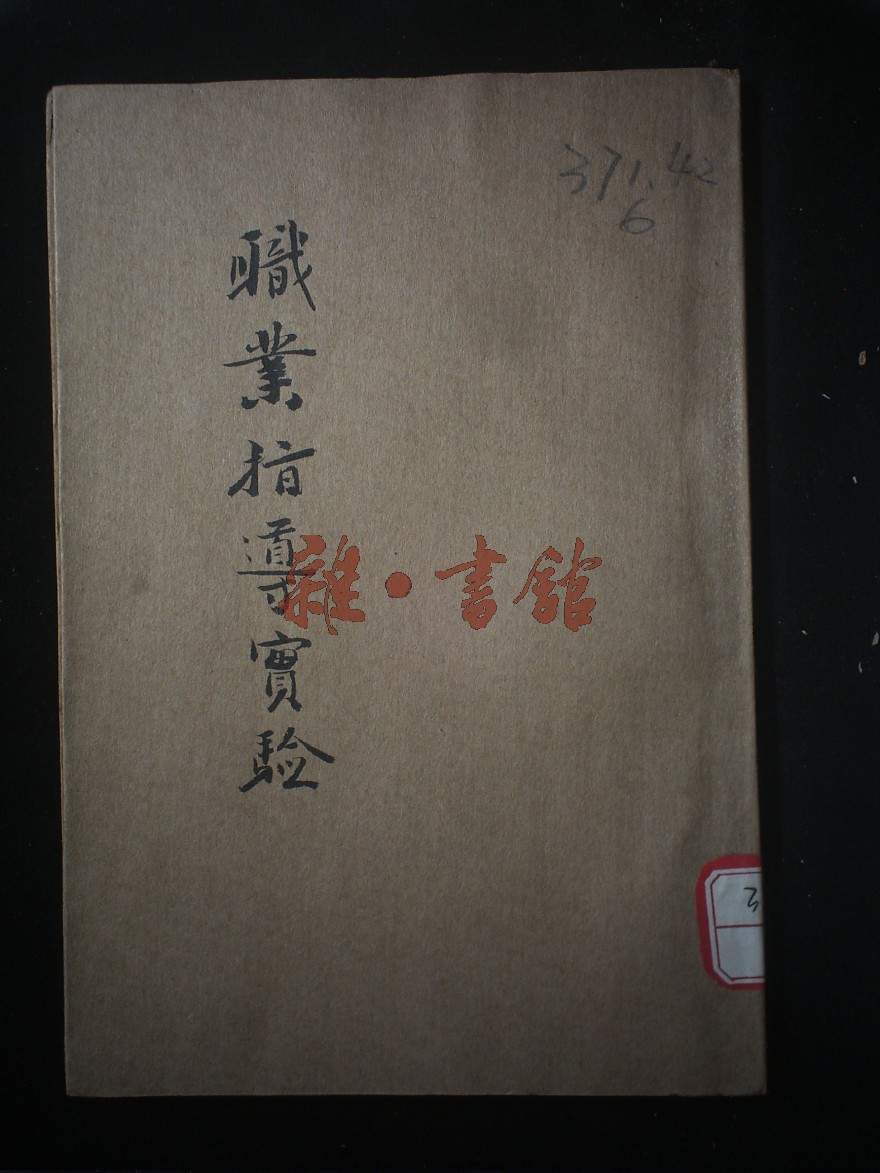 371.42
6
職業指導實驗
雜·書館
3